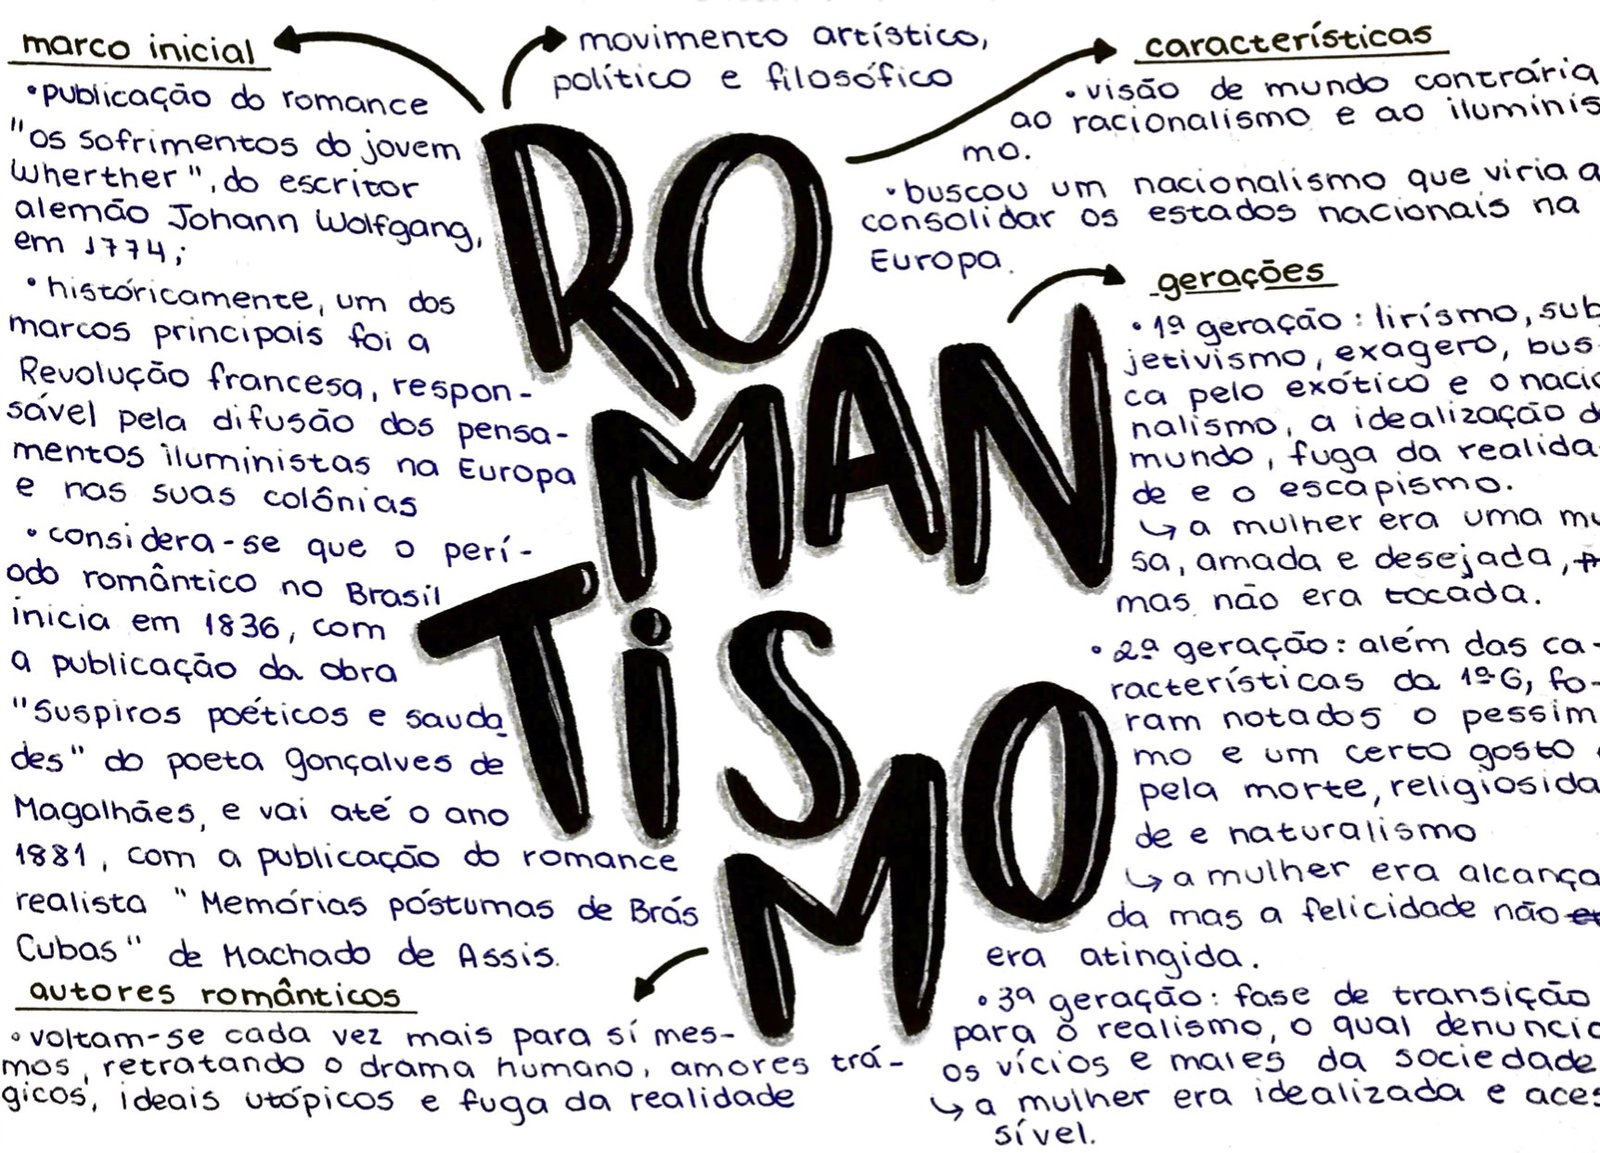 marco inicial
•publicação do romance
"os sofrimentos do jovem
Wherther", do escritor
alemão Johann Wolfgang,
em 1774;
•históricamente, um dos
marcos principais foi a
Revolução francesa, respon-
sável pela difusão dos pensa-
mentos iluministas na Europa
e nas suas colônias
•considera-se que o perí-
odo romântico no Brasil
inicia em 1836, com
a publicação da obra
"Suspiros poéticos e sauda
des" do poeta Gonçalves de
Magalhães, e vai até o ano
1881, com a publicação do romance
realista "Memórias póstumas de Brás
Cubas" de Machado de Assis.
autores românticos
•voltam-se cada vez mais para sí mes-
mos, retratando o drama humano, amores trá-
gicos, ideais utópicos e fuga da realidade
movimento artístico,
político e filosófico
RO
MAN
TiS
MO
características
•visão de mundo contrária
ao racionalismo e ao iluminis
mo.
•buscou um nacionalismo que viria a
consolidar os estados nacionais na
Europa.
gerações
•1ª geração: lirísmo, sub
jetivismo, exagero, bus-
ca pelo exótico e o nacio
nalismo, a idealização d
mundo, fuga da realida-
de e o escapismo.
↳ a mulher era uma mu
sa, amada e desejada,
mas não era tocada.
•2ª geração: além das ca-
racterísticas da 1ªG, fo-
ram notados o pessim
mo e um certo gosto
pela morte, religiosida
de e naturalismo
↳ a mulher era alcança
da mas a felicidade não
era atingida.
•3ª geração: fase de transição
para o realismo, o qual denuncio
os vícios e males da sociedade
↳ a mulher era idealizada e aces
sível.